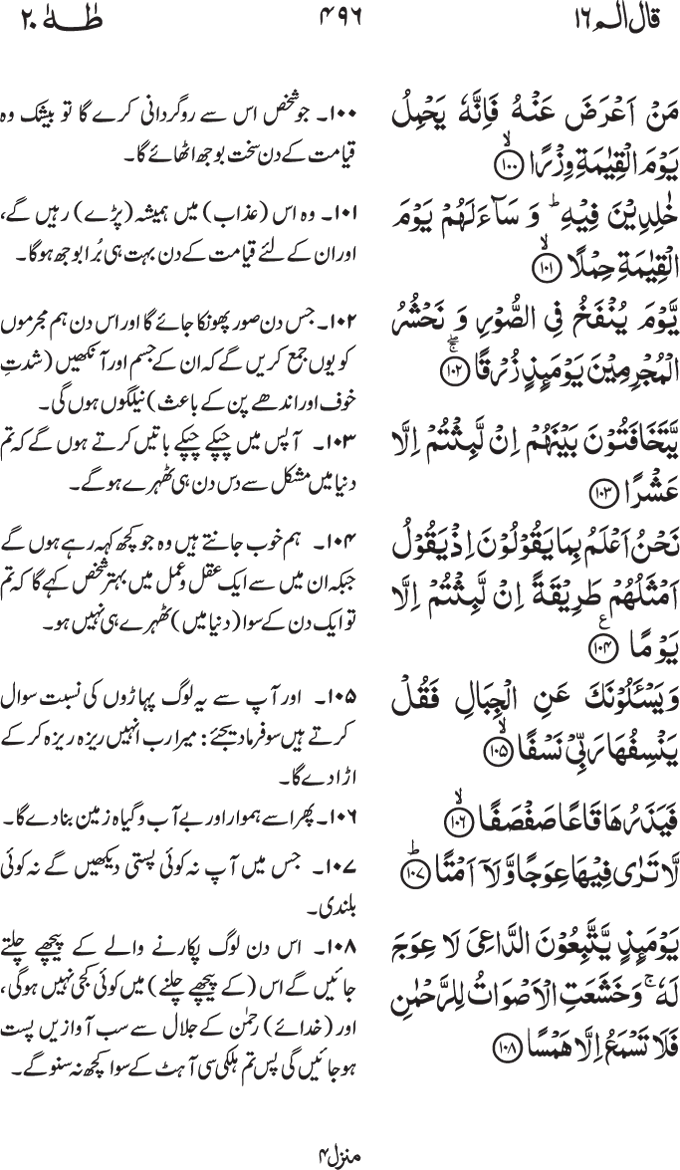 قال الم ١٦
۴۹۶
طٰهٰ ۲۰
مَنْ اَعْرَضَ عَنْهُ فَاِنَّهٗ يَحْمِلُ
يَوْمَ الْقِيٰمَةِ وِزْرًا ۙ‏﴿۱۰۰﴾
خٰلِدِيْنَ فِيْهِ ؕ وَ سَآءَ لَهُمْ يَوْمَ
الْقِيٰمَةِ حِمْلًا ۙ‏﴿۱۰۱﴾
يَّوْمَ يُنْفَخُ فِي الصُّوْرِ وَ نَحْشُرُ
الْمُجْرِمِيْنَ يَوْمَىِٕذٍ زُرْقًا ۚۖ‏﴿۱۰۲﴾
يَّتَخَافَتُوْنَ بَيْنَهُمْ اِنْ لَّبِثْتُمْ اِلَّا
عَشْرًا ﴿۱۰۳﴾
نَحْنُ اَعْلَمُ بِمَا يَقُوْلُوْنَ اِذْ يَقُوْلُ
اَمْثَلُهُمْ طَرِيْقَةً اِنْ لَّبِثْتُمْ اِلَّا
يَوْمًا ﴿۱۰۴﴾ ع
وَيَسْـَٔلُوْنَكَ عَنِ الْجِبَالِ فَقُلْ
يَنْسِفُهَا رَبِّيْ نَسْفًا ۙ‏﴿۱۰۵﴾
فَيَذَرُهَا قَاعًا صَفْصَفًا ۙ‏﴿۱۰۶﴾
لَّا تَرٰى فِيْهَا عِوَجًا وَّلَاۤ اَمْتًا ؕ‏﴿۱۰۷﴾
يَوْمَىِٕذٍ يَّتَّبِعُوْنَ الدَّاعِيَ لَا عِوَجَ
لَهٗ ۚ وَخَشَعَتِ الْاَصْوَاتُ لِلرَّحْمٰنِ
فَلَا تَسْمَعُ اِلَّا هَمْسًا ﴿۱۰۸﴾
۱۰۰۔ جو شخص اس سے روگردانی کرے گا تو بیشک وہ
قیامت کے دن سخت بوجھ اٹھائے گا۔
۱۰۱۔ وہ اس (عذاب) میں ہمیشہ (پڑے) رہیں گے،
اور ان کے لئے قیامت کے دن بہت ہی بُرا بوجھ ہوگا۔
۱۰۲۔ جس دن صور پھونکا جائے گا اور اس دن ہم مجرموں
کو یوں جمع کریں گے کہ ان کے جسم اور آنکھیں (شدتِ
خوف اور اندھے پن کے باعث) نیلگوں ہوں گی۔
۱۰۳۔ آپس میں چپکے چپکے باتیں کرتے ہوں گے کہ تم
دنیا میں مشکل سے دس دن ہی ٹھہرے ہوگے۔
۱۰۴۔ ہم خوب جانتے ہیں وہ جو کچھ کہہ رہے ہوں گے
جبکہ ان میں سے ایک عقل و عمل میں بہتر شخص کہے گا کہ تم
تو ایک دن کے سوا (دنیا میں) ٹھہرے ہی نہیں ہو۔
۱۰۵۔ اور آپ سے یہ لوگ پہاڑوں کی نسبت سوال
کرتے ہیں سو فرما دیجئے: میرا رب انہیں ریزہ ریزہ کر کے
اڑا دے گا۔
۱۰۶۔ پھر اسے ہموار اور بے آب و گیاہ زمین بنا دے گا۔
۱۰۷۔ جس میں آپ نہ کوئی پستی دیکھیں گے نہ کوئی
بلندی۔
۱۰۸۔ اس دن لوگ پکارنے والے کے پیچھے چلتے
جائیں گے اس (کے پیچھے چلنے) میں کوئی کجی نہیں ہوگی،
اور (خدائے) رحمٰن کے جلال سے سب آوازیں پست
ہو جائیں گی پس تم ہلکی سی آہٹ کے سوا کچھ نہ سنو گے۔
منزل ۴